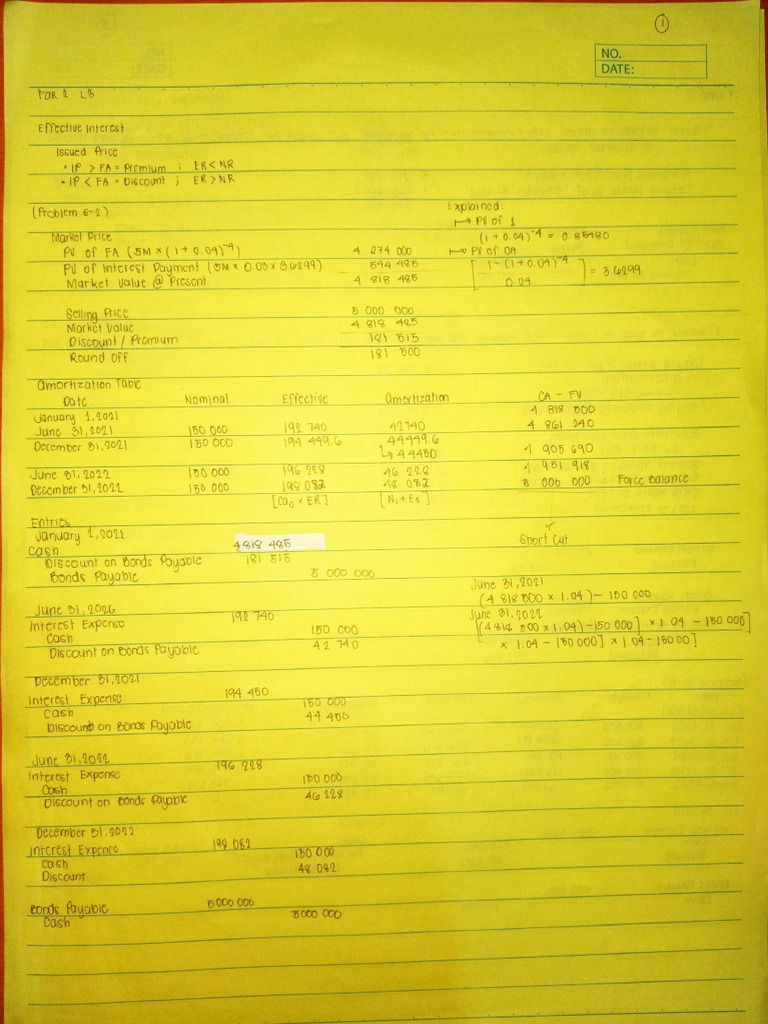 1
NO.
DATE:
FAR 2 L3
Effective Interest
Issued Price
• IP > FA = Premium ; ER < NR
• IP < FA = Discount ; ER > NR
(Problem 6-2)
Explained:
PV of 1
Market Price
(1 + 0.04)⁻⁴ = 0.85480
PV of FA (5M × (1 + 0.04)⁻⁴) 4 274 000
PV of OA
PV of Interest Payment (5M × 0.03 × 3.6299) 544 485
[1 - (1 + 0.04)⁻⁴ / 0.04] = 3.6299
Market Value @ Present 4 818 485
Selling Price 5 000 000
Market Value 4 818 485
Discount / Premium 181 515
Round Off 181 500
Amortization Table
Date Nominal Effective Amortization CA - FV
January 1, 2021 4 818 500
June 31, 2021 150 000 192 740 42740 4 861 240
December 31, 2021 150 000 194 449.6 44449.6
→ 44450 4 905 690
June 31, 2022 150 000 196 228 46 228 4 951 918
December 31, 2022 150 000 198 082 48 082 5 000 000 = Force Balance
[Ca₀ × ER] [N₁ + E₂]
Entries
January 1, 2021
Short Cut
Cash 4818 485
Discount on Bonds Payable 181 515
Bonds Payable 5 000 000
June 31, 2021
(4 818 500 × 1.04) - 150 000
June 31, 2026
June 31, 2022
Interest Expense 192 740
[(4 818 500 × 1.04) - 150 000] × 1.04 - 150 000]
Cash 150 000
× 1.04 - 150 000] × 1 04 - 150 00]
Discount on Bonds Payable 42 740
December 31, 2021
Interest Expense 194 450
Cash 150 000
Discound on Bonds Payable 44 450
June 31, 2022
Interest Expense 196 228
Cash 150 000
Discount on Bonds Payable 46 228
December 31, 2022
Interest Expence 198 082
Cash 150 000
Discount 48 082
Bonds Payable 5000 000
Cash 5000 000